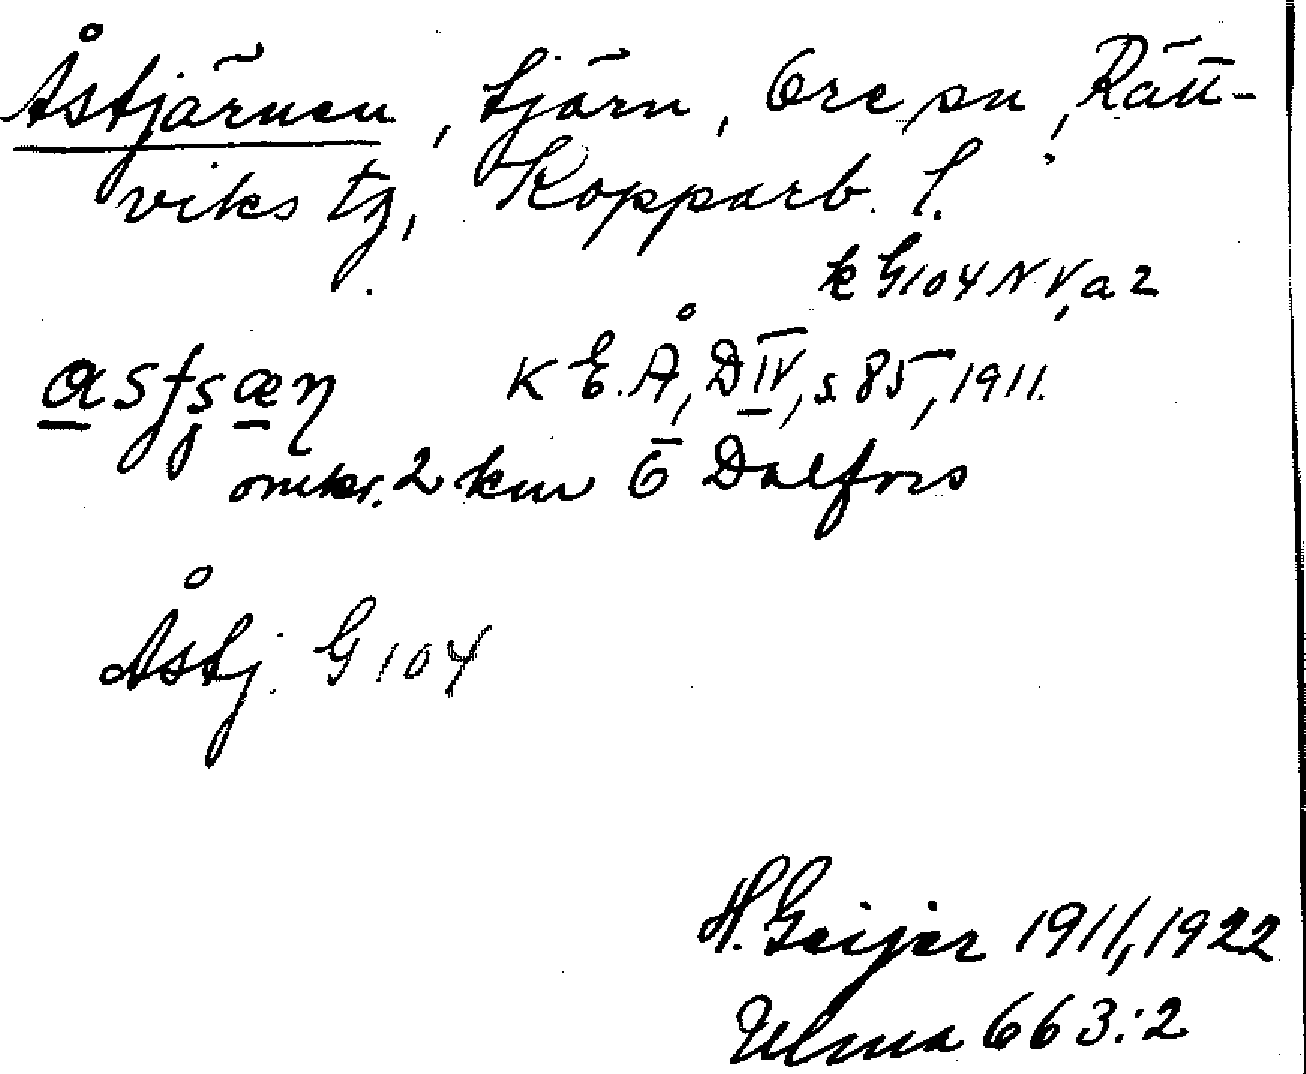 Åstjärnen, tjärn, Ore sn, Rätt-
viks tg, Kopparb. l.
k G104 NV, a 2
K E. Å, D IV, s. 85, 1911.
omkr. 2 km Ö Dalfors
Åstj. G104
H. Geijer 1911, 1922
Ulma 663:2